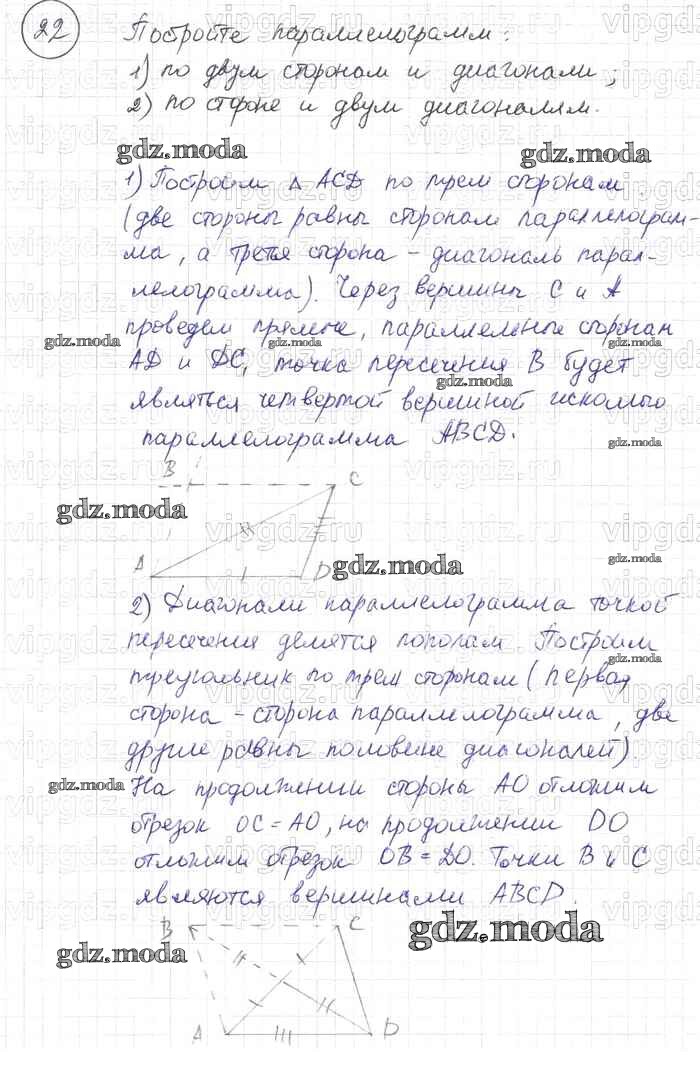 22 Постройте параллелограмм:
1) по двум сторонам и диагонали;
2) по стороне и двум диагоналям.
gdz.moda gdz.moda
1) Построим △ ACD по трем сторонам
(две стороны равны сторонам параллелограм-
ма, а третья сторона - диагональ парал-
лелограмма). Через вершины C и A
проведем прямые, параллельные сторонам
gdz.moda gdz.moda gdz.moda
AD и DC, точка пересечения B будет
gdz.moda
являться четвертой вершиной искомого
параллелограмма ABCD.
gdz.moda
B C
gdz.moda
A D
gdz.moda gdz.moda
2) Диагонали параллелограмма точкой
пересечения делятся пополам. Построим
gdz.moda
треугольник по трем сторонам (первая
сторона - сторона параллелограмма, две
другие равны половине диагоналей).
gdz.moda gdz.moda
На продолжении стороны AO отложим
отрезок OC = AO, на продолжении DO
отложим отрезок OB = DO. Точки B и C
являются вершинами ABCD.
B C
gdz.moda gdz.moda
A D
vipgdz.ru